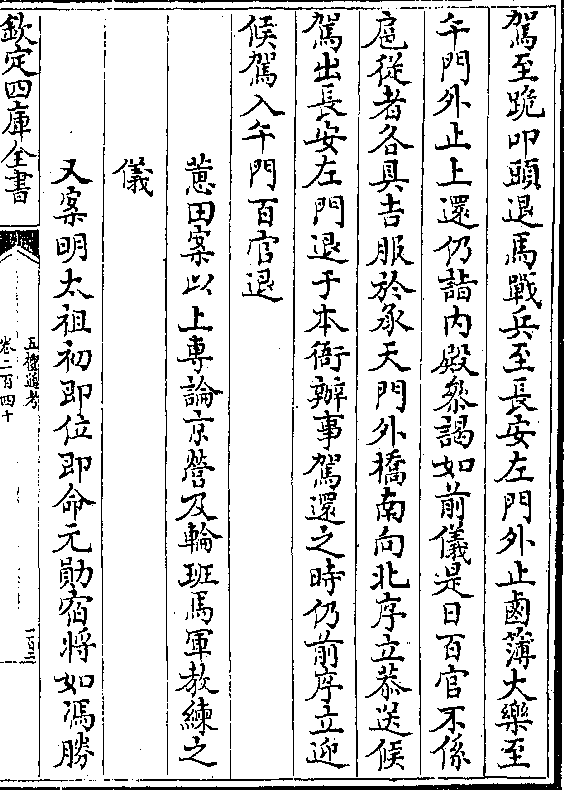 駕至跪叩頭退馬戰兵至長安左門外止鹵簿大樂至
午門外止上還仍詣内殿叅謁如前儀是日百官不係
扈從者各具吉服於承天門外橋南向北序立恭送候
駕出長安左門退于本衙辦事駕還之時仍前序立迎
候駕入午門百官退
蕙田案以上專論京營及輪班馬軍教練之
儀
又案明太祖初即位即命元勛宿將如馮勝
欽定四庫全書
五禮通考
卷二百四十